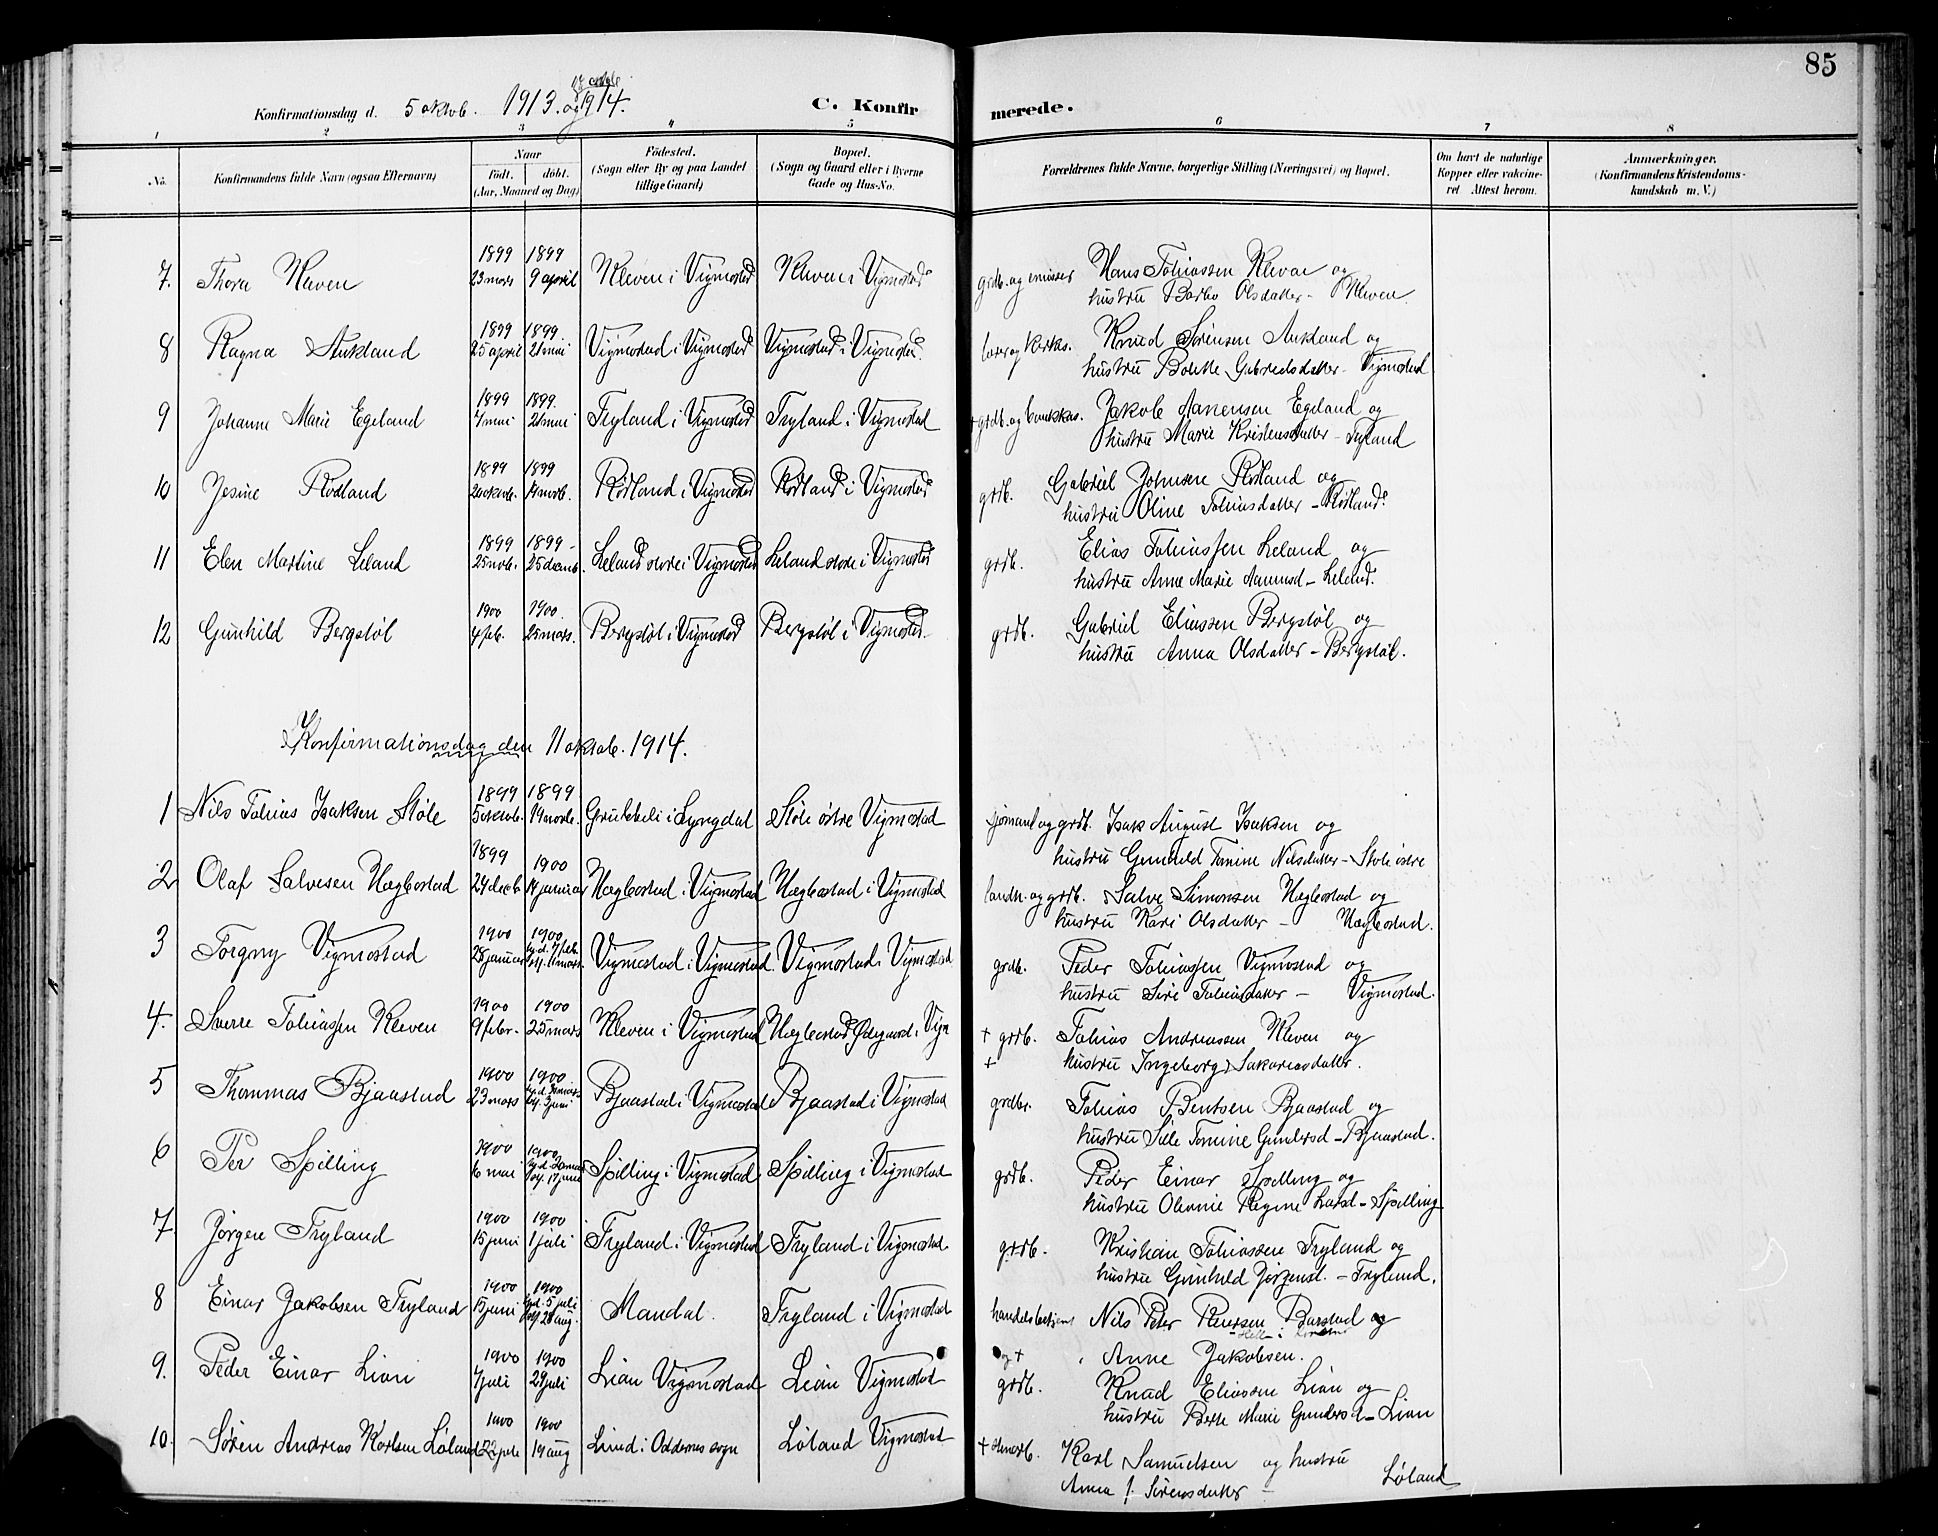 85
Konfirmationsdag d. 5 oktob. 1913. og 1914.
C. Konfirmerede.
1 2 3 4 5 6 7 8
No. Konfirmandens fulde Navn (ogsaa Efternavn) Naar født. døbt. (Aar, Maaned og Dag) Fødested. (Sogn eller By og paa Landet tillige Gaard) Bopæl. (Sogn og Gaard eller i Byerne Gade og Hus-No. Forældrenes fulde Navne, borgerlige Stilling (Næringsvei) og Bopæl. Om havt de naturlige Kopper eller vakcineret Attest herom. Anmerkninger. (Konfirmandens Kristendomskundskab m. V.)
7. Thora Kleven 1899 23 mars 1899 9 april Kleven i Vigmostad Kleven i Vigmostad grdb. og emissær Hans Tobiassen Kleven og
hustru Barbro Olsdatter - Kleven.
8 Ragna Aukland 1899 25 april 1899. 21 mai Vigmostad i Vigmostad Vigmostad i Vigmostad. lærer og kirkes. Knud Sørensen Aukland og
hustru Bolette Gabrielsdatter - Vigmostad
9 Johanne Marie Egeland 1899 7 mai 1899. 21 mai Tryland i Vigmostad Tryland i Vigmostad + grdb. og bankkas. Jakob Aanensen Egeland og
hustru Marie Kristensdatter - Tryland
10 Jesine Rødland 1899 1899 Rødland i Vigmostad Rødland i Vigmostad grdb. Gabriel Johnsen Rødland og
hustru Oline Tobiasdatter - Rødland.
11 Elen Martine Leland 1899 25 nob. 1899 - 25 decemb. Leland store i Vigmostad Leland store i Vigmostad grdb. Elias Tobiassen Leland og
hustru Anne Marie Aanensd - Leland.
12 Gunhild Bergstøl 1900 4 feb. 1900. 25 mars. Bergstøl i Vigmostad Bergstøl i Vigmostad grdb. Gabriel Eliassen Bergstøl og
hustru Anna Olsdatter - Bergstøl.
Konfirmationsdag den 11 oktob. 1914.
1 Nils Tobias Isaksen Støle 1899 5 oktob. 1899 19 novb. Grubbeli i Lyngdal Støle østre Vigmostad sjømand og grdb. Isak August Isaksen og
hustru Gunhild Tomine Nilsdatter - Støle østre
2 Olaf Salvesen Hægbostad 1899 24 decb 1900 14 januar Hægbostad i Vigmostad Hægbostad i Vigmostad landh. og grdb. Salve Simonsen Hægbostad og
hustru Kari Olsdatter - Hægbostad.
3 Torgny Vigmostad 1900 28 januar 1900 hjd. 7 feb. 11 mars. Vigmostad i Vigmostad Vigmostad i Vigmostad grdb. Peder Tobiassen Vigmostad og
hustru Siri Tobiasdatter - Vigmostad.
4. Sverre Tobiassen Kleven 1900 9 febr. 1900 25 mars Kleven i Vigmostad Hægbostad Ødegaard i Vigm + grdb. Tobias Andreassen Kleven og
+ hustru Ingeborg Sakariasdatter.
5 Thommas Bjaastad 1900 23 mars 1900 3 juni Bjaastad i Vigmostad Bjaastad i Vigmostad grdbr. Tobias Bentsen Bjaastad og
hustru Sille Tomine Gundersd - Bjaastad.
6 Per Spilling 1900 6 mai 1900 17 juni Spilling i Vigmostad Spilling i Vigmostad grdb. Peder Einar Spilling og
hustru Regine Larsd - Spilling
7. Jørgen Tryland 1900 15 juni 1900 1 juli Tryland i Vigmostad Tryland i Vigmostad grdb. Kristian Tobiassen Tryland og
hustru Gunhild Jørgensd. - Tryland.
8 Einar Jakobsen Tryland 1900 15 juni 1900 hjd. 5 juli 26 aug. Mandal. Tryland i Vigmostad handelsbetjent Nils Peter Petersen Barstad og
og + Anne Jakobsen.
9. Peder Einar Lian 1900 7 juli 1900 29 juli Lian Vigmostad Lian Vigmostad grdb. Knud Eliassen Lian og
hustru Berte Marie Gundersd - Lian
10. Søren Andreas Karlsen Løland 1900 22 jule 1900 19 aug Lund i Oddernes sogn Løland Vigmostad + Karl Samuelsen og hustru
Anna J. Sørensdatter - Løland